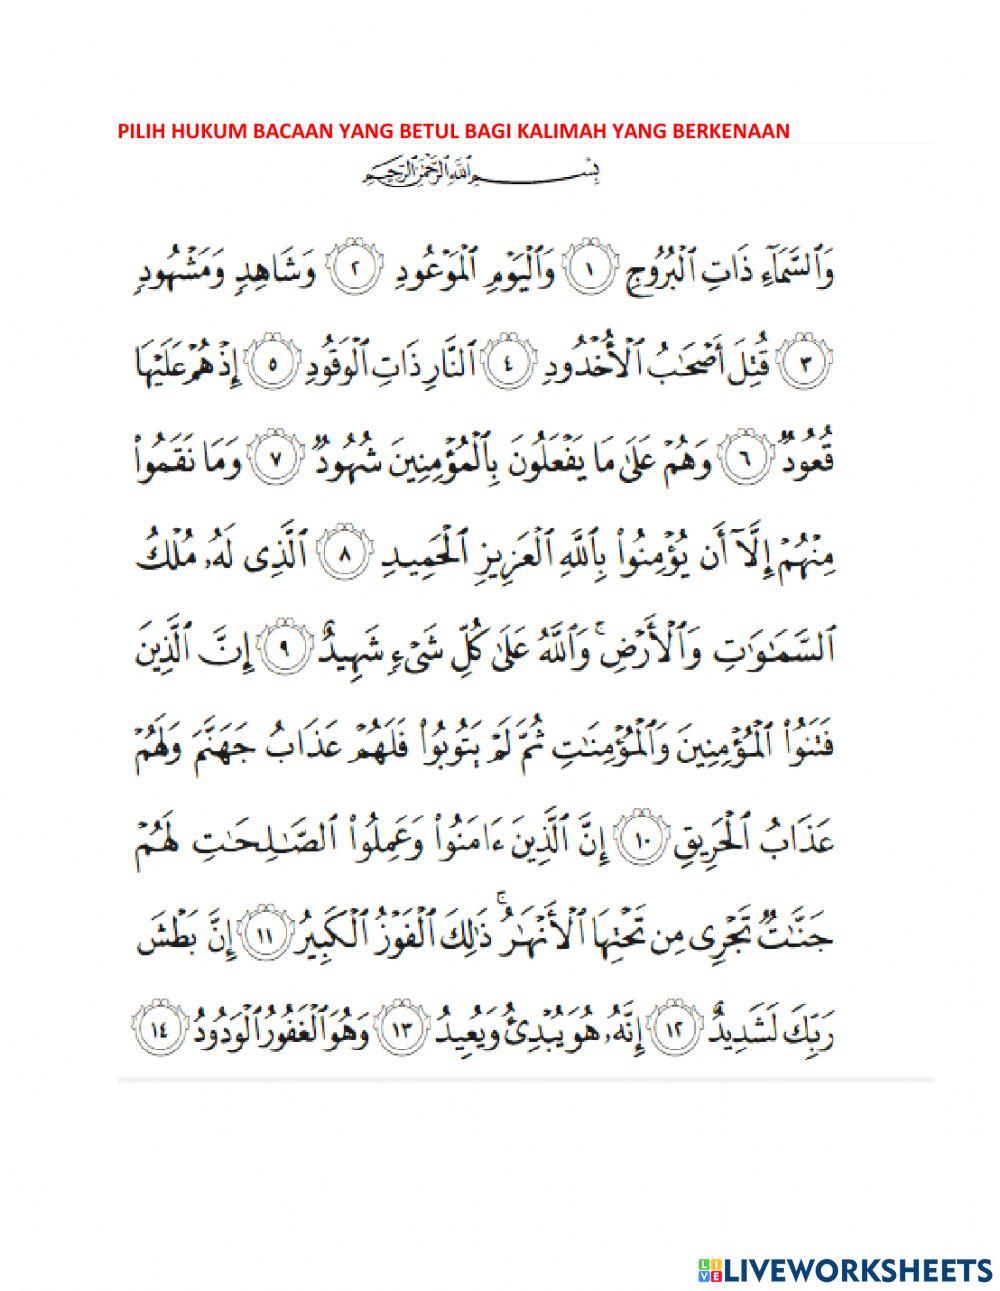 PILIH HUKUM BACAAN YANG BETUL BAGI KALIMAH YANG BERKENAAN
بِسْمِ ٱللَّهِ ٱلرَّحْمَٰنِ ٱلرَّحِيمِ
وَٱلسَّمَآءِ ذَاتِ ٱلْبُرُوجِ ١ وَٱلْيَوْمِ ٱلْمَوْعُودِ ٢ وَشَاهِدٍ وَمَشْهُودٍ
٣ قُتِلَ أَصْحَٰبُ ٱلْأُخْدُودِ ٤ ٱلنَّارِ ذَاتِ ٱلْوَقُودِ ٥ إِذْ هُمْ عَلَيْهَا
قُعُودٌ ٦ وَهُمْ عَلَىٰ مَا يَفْعَلُونَ بِٱلْمُؤْمِنِينَ شُهُودٌ ٧ وَمَا نَقَمُوا۟
مِنْهُمْ إِلَّآ أَن يُؤْمِنُوا۟ بِٱللَّهِ ٱلْعَزِيزِ ٱلْحَمِيدِ ٨ ٱلَّذِى لَهُۥ مُلْكُ
ٱلسَّمَٰوَٰتِ وَٱلْأَرْضِ ۚ وَٱللَّهُ عَلَىٰ كُلِّ شَىْءٍ شَهِيدٌ ٩ إِنَّ ٱلَّذِينَ
فَتَنُوا۟ ٱلْمُؤْمِنِينَ وَٱلْمُؤْمِنَٰتِ ثُمَّ لَمْ يَتُوبُوا۟ فَلَهُمْ عَذَابُ جَهَنَّمَ وَلَهُمْ
عَذَابُ ٱلْحَرِيقِ ١٠ إِنَّ ٱلَّذِينَ ءَامَنُوا۟ وَعَمِلُوا۟ ٱلصَّٰلِحَٰتِ لَهُمْ
جَنَّٰتٌ تَجْرِى مِن تَحْتِهَا ٱلْأَنْهَٰرُ ۚ ذَٰلِكَ ٱلْفَوْزُ ٱلْكَبِيرُ ١١ إِنَّ بَطْشَ
رَبِّكَ لَشَدِيدٌ ١٢ إِنَّهُۥ هُوَ يُبْدِئُ وَيُعِيدُ ١٣ وَهُوَ ٱلْغَفُورُ ٱلْوَدُودُ ١٤
LIVE LIVEWORKSHEETS